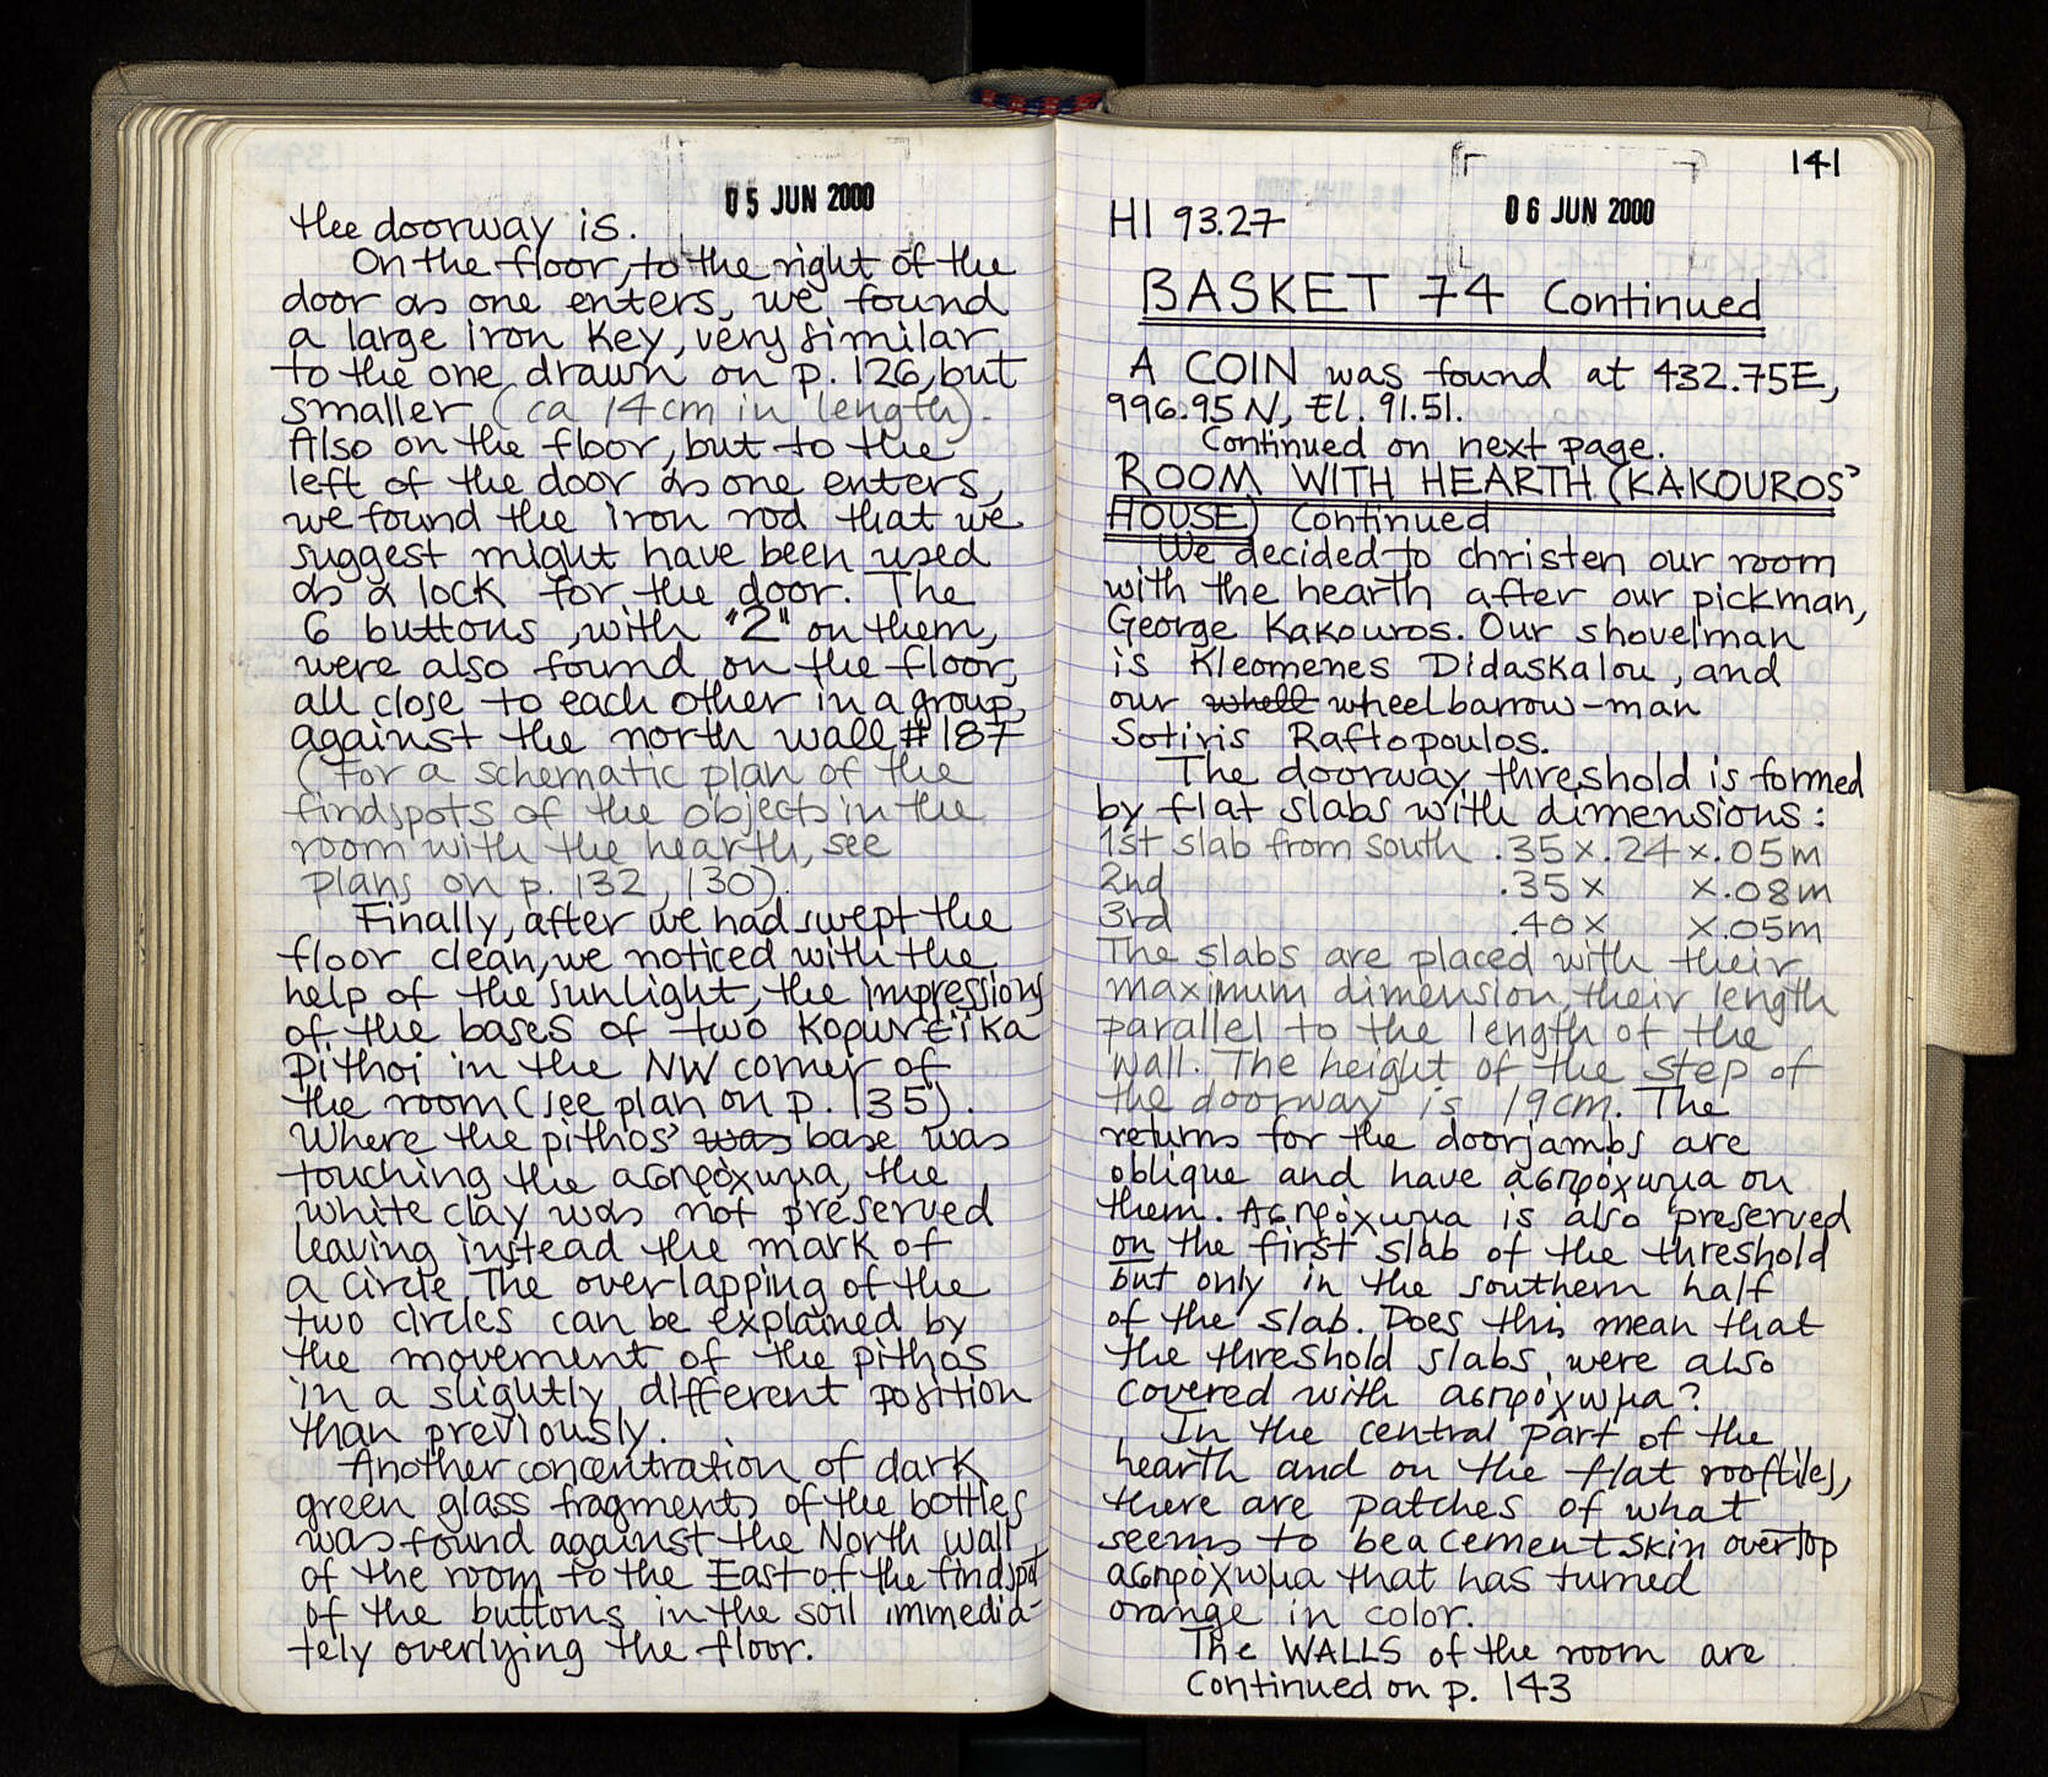 05 JUN 2000
the doorway is.
On the floor, to the right of the
door as one enters, we found
a large iron key, very similar
to the one drawn on p. 126, but
smaller (ca 14cm in length).
Also on the floor, but to the
left of the door as one enters,
we found the iron rod that we
suggest might have been used
as a lock for the door. The
6 buttons, with "2" on them,
were also found on the floor,
all close to each other in a group,
against the north wall #187
(For a schematic plan of the
findspots of the objects in the
room with the hearth, see
plans on p. 132, 130).
Finally, after we had swept the
floor clean, we noticed with the
help of the sunlight, the impressions
of the bases of two Κορωνέϊκα
Pithoi in the NW corner of
the room (see plan on p. 135).
Where the pithos' was base was
touching the ασπρόχωμα, the
white clay was not preserved
leaving instead the mark of
a circle. The overlapping of the
two circles can be explained by
the movement of the pithos
in a slightly different position
than previously.
Another concentration of dark
green glass fragments of the bottles
was found against the North wall
of the room to the East of the findspot
of the buttons in the soil immedia-
tely overlying the floor.
141
06 JUN 2000
HI 93.27
BASKET 74 Continued
A COIN was found at 432.75E,
996.95N, El. 91.51.
Continued on next page.
ROOM WITH HEARTH (KAKOUROS'
HOUSE) Continued
We decided to christen our room
with the hearth after our pickman,
George Kakouros. Our shovelman
is Kleomenes Didaskalou, and
our whell wheelbarrow-man
Sotiris Raftopoulos.
The doorway threshold is formed
by flat slabs with dimensions:
1st slab from south .35x.24x.05m
2nd .35x x.08m
3rd .40x x.05m
The slabs are placed with their
maximum dimension, their length
parallel to the length of the
wall. The height of the step of
the doorway is 19cm. The
returns for the doorjambs are
oblique and have ασπρόχωμα on
them. Ασπρόχωμα is also preserved
on the first slab of the threshold
but only in the southern half
of the slab. Does this mean that
the threshold slabs were also
covered with ασπρόχωμα?
In the central part of the
hearth and on the flat rooftiles,
there are patches of what
seems to be a cement skin overtop
ασπρόχωμα that has turned
orange in color.
The WALLS of the room are
Continued on p. 143